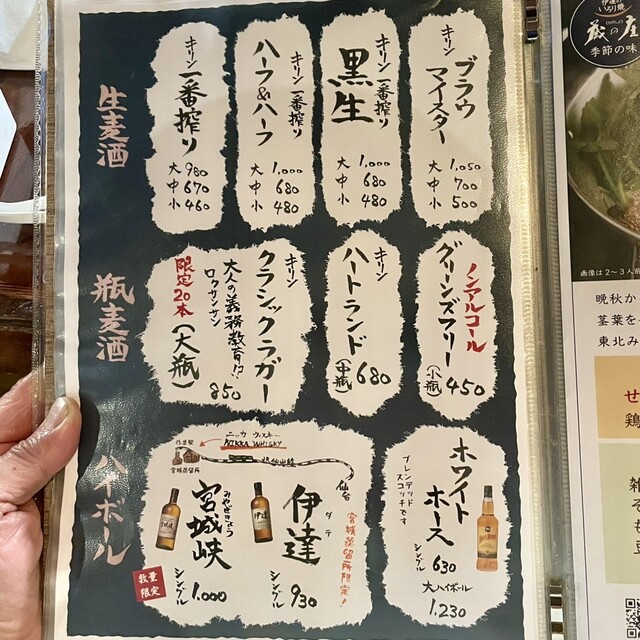 生麦酒
キリン
ブラウ
マイスター
大 1,050
中 700
小 500
キリン一番搾り
黒生
大 1,000
中 680
小 480
キリン一番搾り
ハーフ&ハーフ
大 1,000
中 680
小 480
キリン
一番搾り
大 980
中 670
小 460
瓶麦酒
ノンアルコール
グリーンズフリー
(小瓶) 450
キリン
ハートランド
(中瓶) 680
キリン
クラシックラガー
大人の義務教育!?
ロクサンサン
限定20本
(大瓶)
850
ハイボール
ホワイト
ホース
ブレンデッド
スコッチです
630
大ハイボール
1,230
ニッカ ウヰスキー
NIKKA WHISKY
作並駅
宮城蒸留所
JR仙山線
仙台
宮城蒸留所限定!
伊達
ダテ
シングル 930
宮城峡
みやぎきょう
シングル 1,000
数量
限定
いろり焼
蔵の庄
季節の味
画像は2〜3人前
晩秋か
茎葉を
東北み
せ
鶏
雑
そ
豆